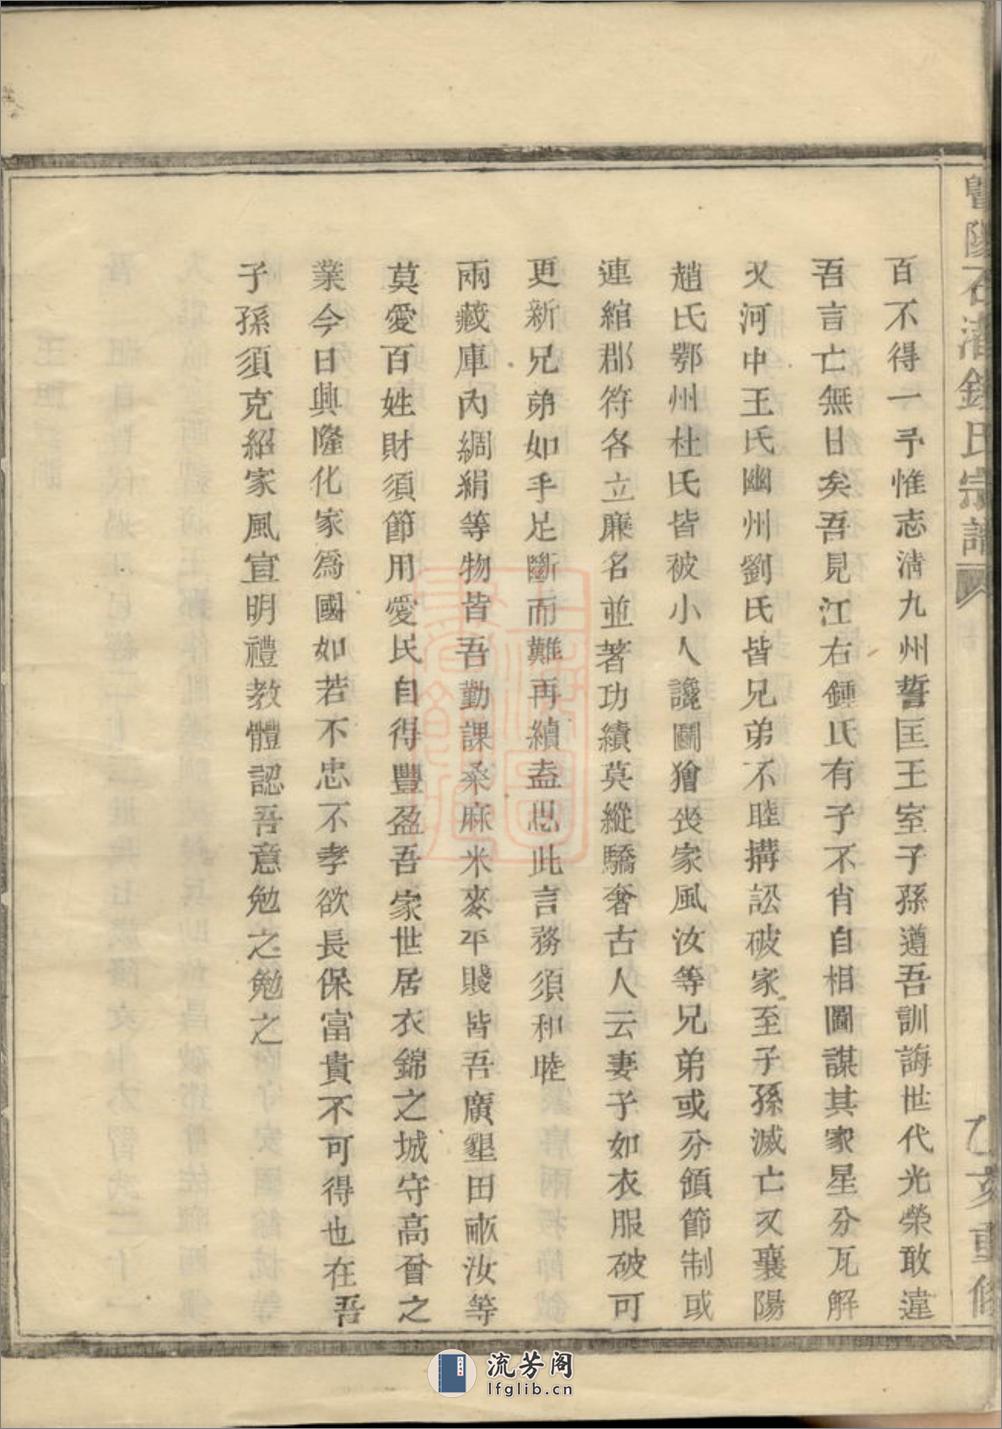 暨陽石瀆錢氏宗譜
乙亥重修
百不得一予惟志淸九州誓匡王室子孫遵吾訓誨世代光榮敢違
吾言亡無日矣吾見江右鍾氏有子不肖自相圖謀其家星分瓦解
又河中王氏幽州劉氏皆兄弟不睦搆訟破家至子孫滅亡又襄陽
趙氏鄂州杜氏皆被小人讒鬪獪喪家風汝等兄弟或分領節制或
連綰郡符各立廉名並著功績莫縱驕奢古人云妻子如衣服破可
更新兄弟如手足斷而難再續盍思此言務須和睦
兩藏庫內綢絹等物皆吾勤課桑麻米麥平賤皆吾廣墾田畝汝等
莫愛百姓財須節用愛民自得豐盈吾家世居衣錦之城守高曾之
業今日興隆化家爲國如若不忠不孝欲長保富貴不可得也在吾
子孫須克紹家風宣明禮教體認吾意勉之勉之
流芳阁
lfglib.cn